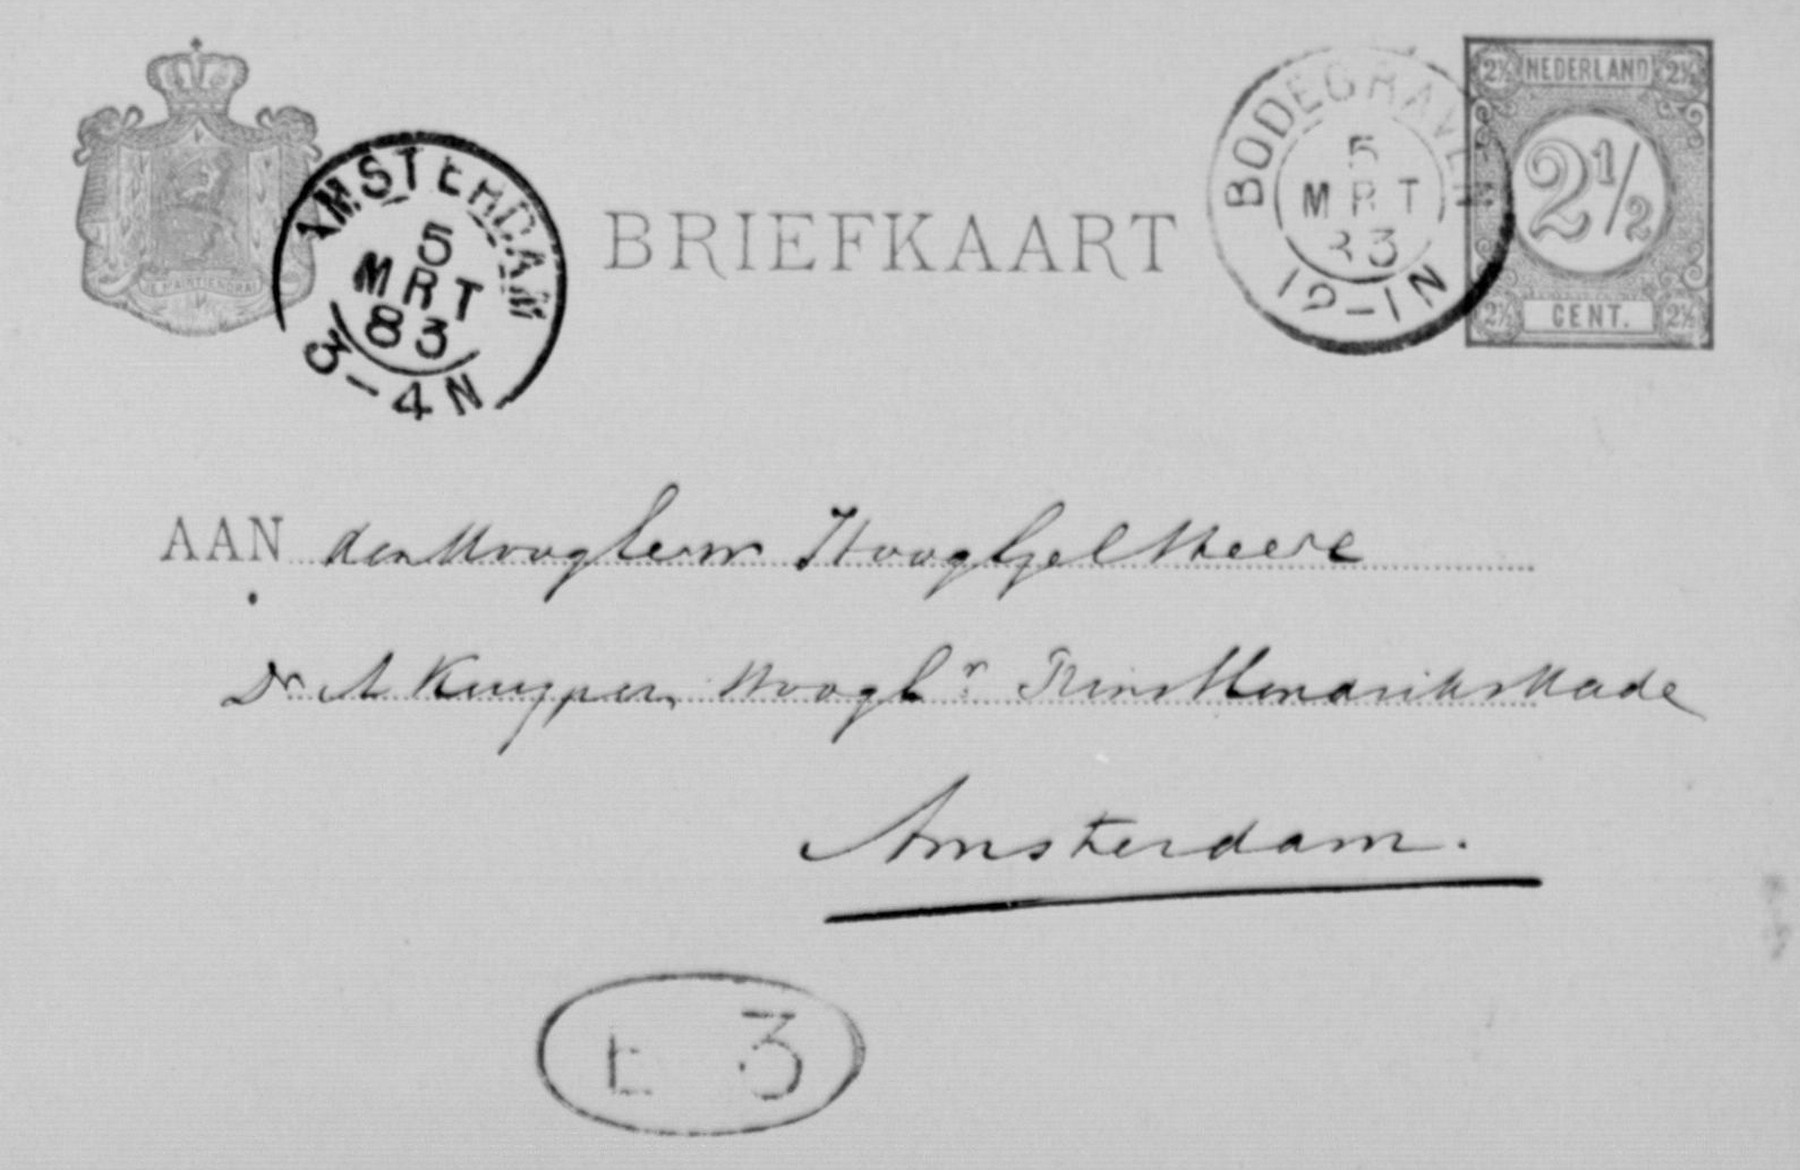 JE MAINTIENDRAI
AMSTERDAM
5
MRT
83
3-4N
BRIEFKAART
BODEGRAVEN
5
MRT
83
12-1N
2½ NEDERLAND 2½
2½
2½ CENT. 2½
AAN den Hoogleerw Hooggel Heere
Dr A Kuyper, Hoogl r Prins Hendriks Kade
Amsterdam.
E 3